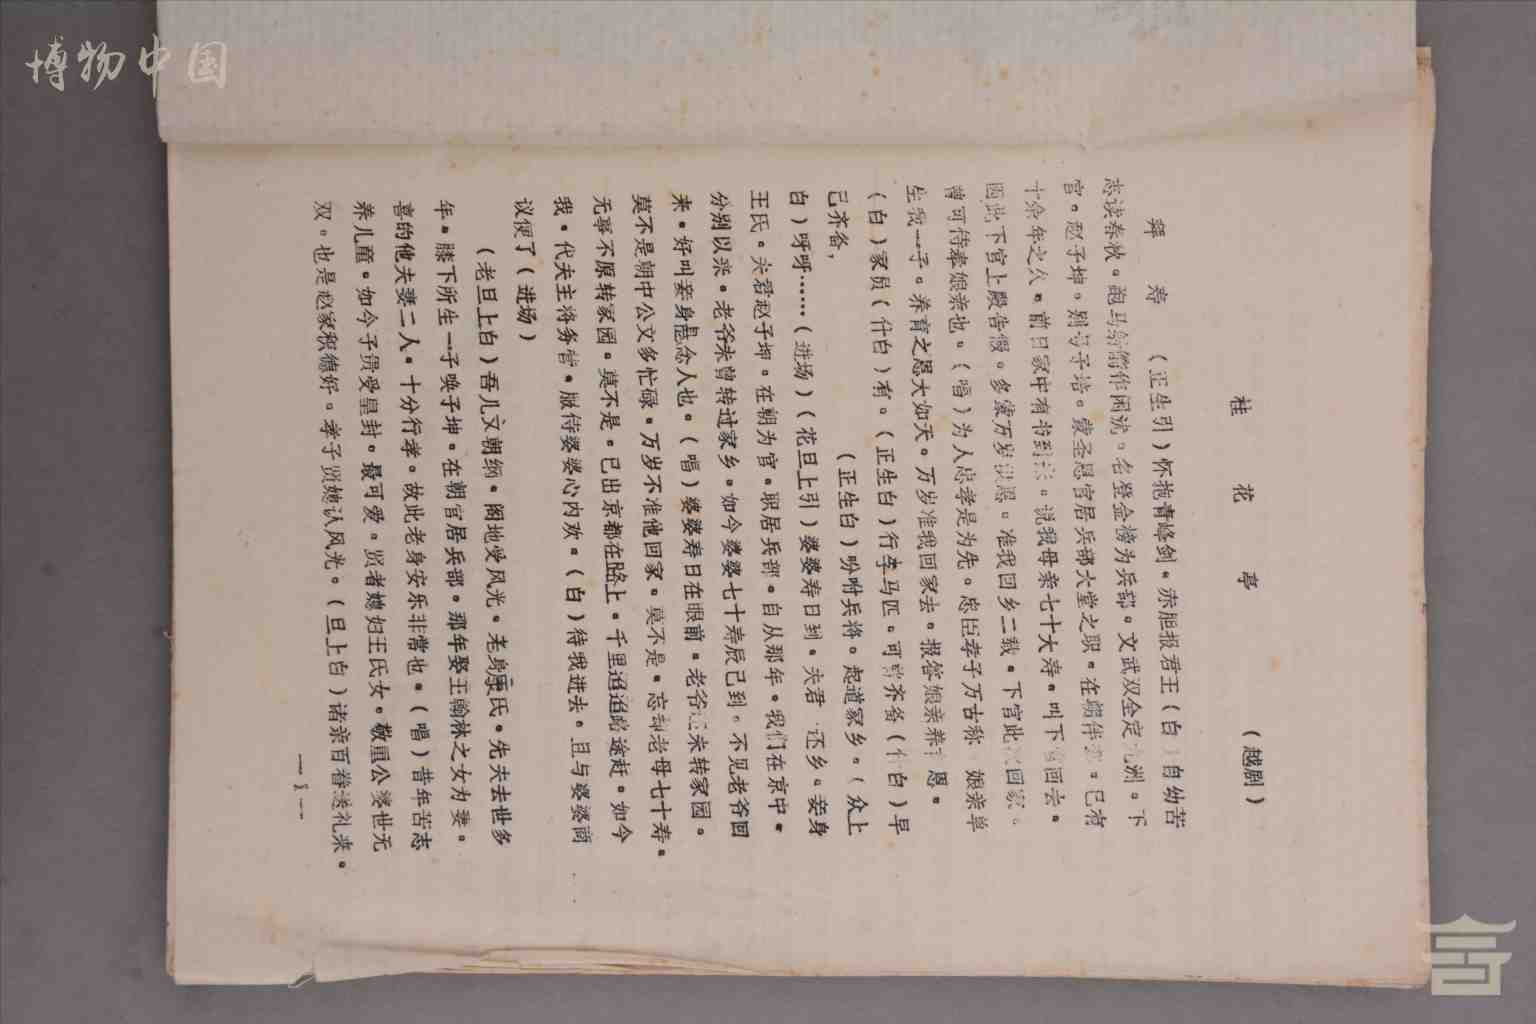 博物中国
桂花亭 （越剧）
拜寿 （正生引）怀抱青峰剑。赤胆报君王（白）自幼苦
志读春秋。跑马射箭作闲沈。名登金榜为兵部。文武双全定九洲。下
官。赵子坤。别号子培。蒙圣恩官居兵部大堂之职。在朝伴 。已有
十余年之久。前日家中有书到来。说我母亲七十大寿。叫下官回去。
因此下官上殿告假。多蒙万岁洪恩。准我回乡二载。下官此次回家。
曾可侍奉娘亲也。（唱）为人忠孝是为先。忠臣孝子万古称 娘亲单
生我一子。养育之恩大如天。万岁准我回家去。报答娘亲养育恩。
（白）家员（什白）有。（正生白）行李马匹。可曾齐备（什白）早
已齐备， （正生白）吩咐兵将。起道家乡。（众上
白）呼呼……（进场）（花旦上引）婆婆寿日到。夫君 还乡。妾身
王氏。夫君赵子坤。在朝为官。职居兵部。自从那年。我们在京中。
分别以来。老爷未曾转过家乡。如今婆婆七十寿辰已到。不见老爷回
来。好叫妾身悬念人也。（唱）婆婆寿日在眼前。老爷还未转家园。
莫不是朝中公文多忙碌。万岁不准他回家。莫不是。忘却老母七十寿。
无事不原转家园。莫不是。已出京都在路上。千里迢迢路途赶。如今
我。代夫主将务管。服侍婆婆心内欢。（白）待我进去。且与婆婆商
议便了（进场）
（老旦上白）吾儿义朝纲。阁地受风光。老身康氏。先夫去世多
年。膝下所生一子唤子坤。在朝官居兵部。那年娶王翰林之女为妻。
喜的他夫妻二人。十分行孝。故此老身安乐非常也。（唱）昔年苦志
养儿童。如今子贵受皇封。最可爱。贤者媳妇王氏女。敬重公婆世无
双。也是赵家积德好。孝子贤媳认风光。（旦上白）诸亲百眷送礼来。
—1—